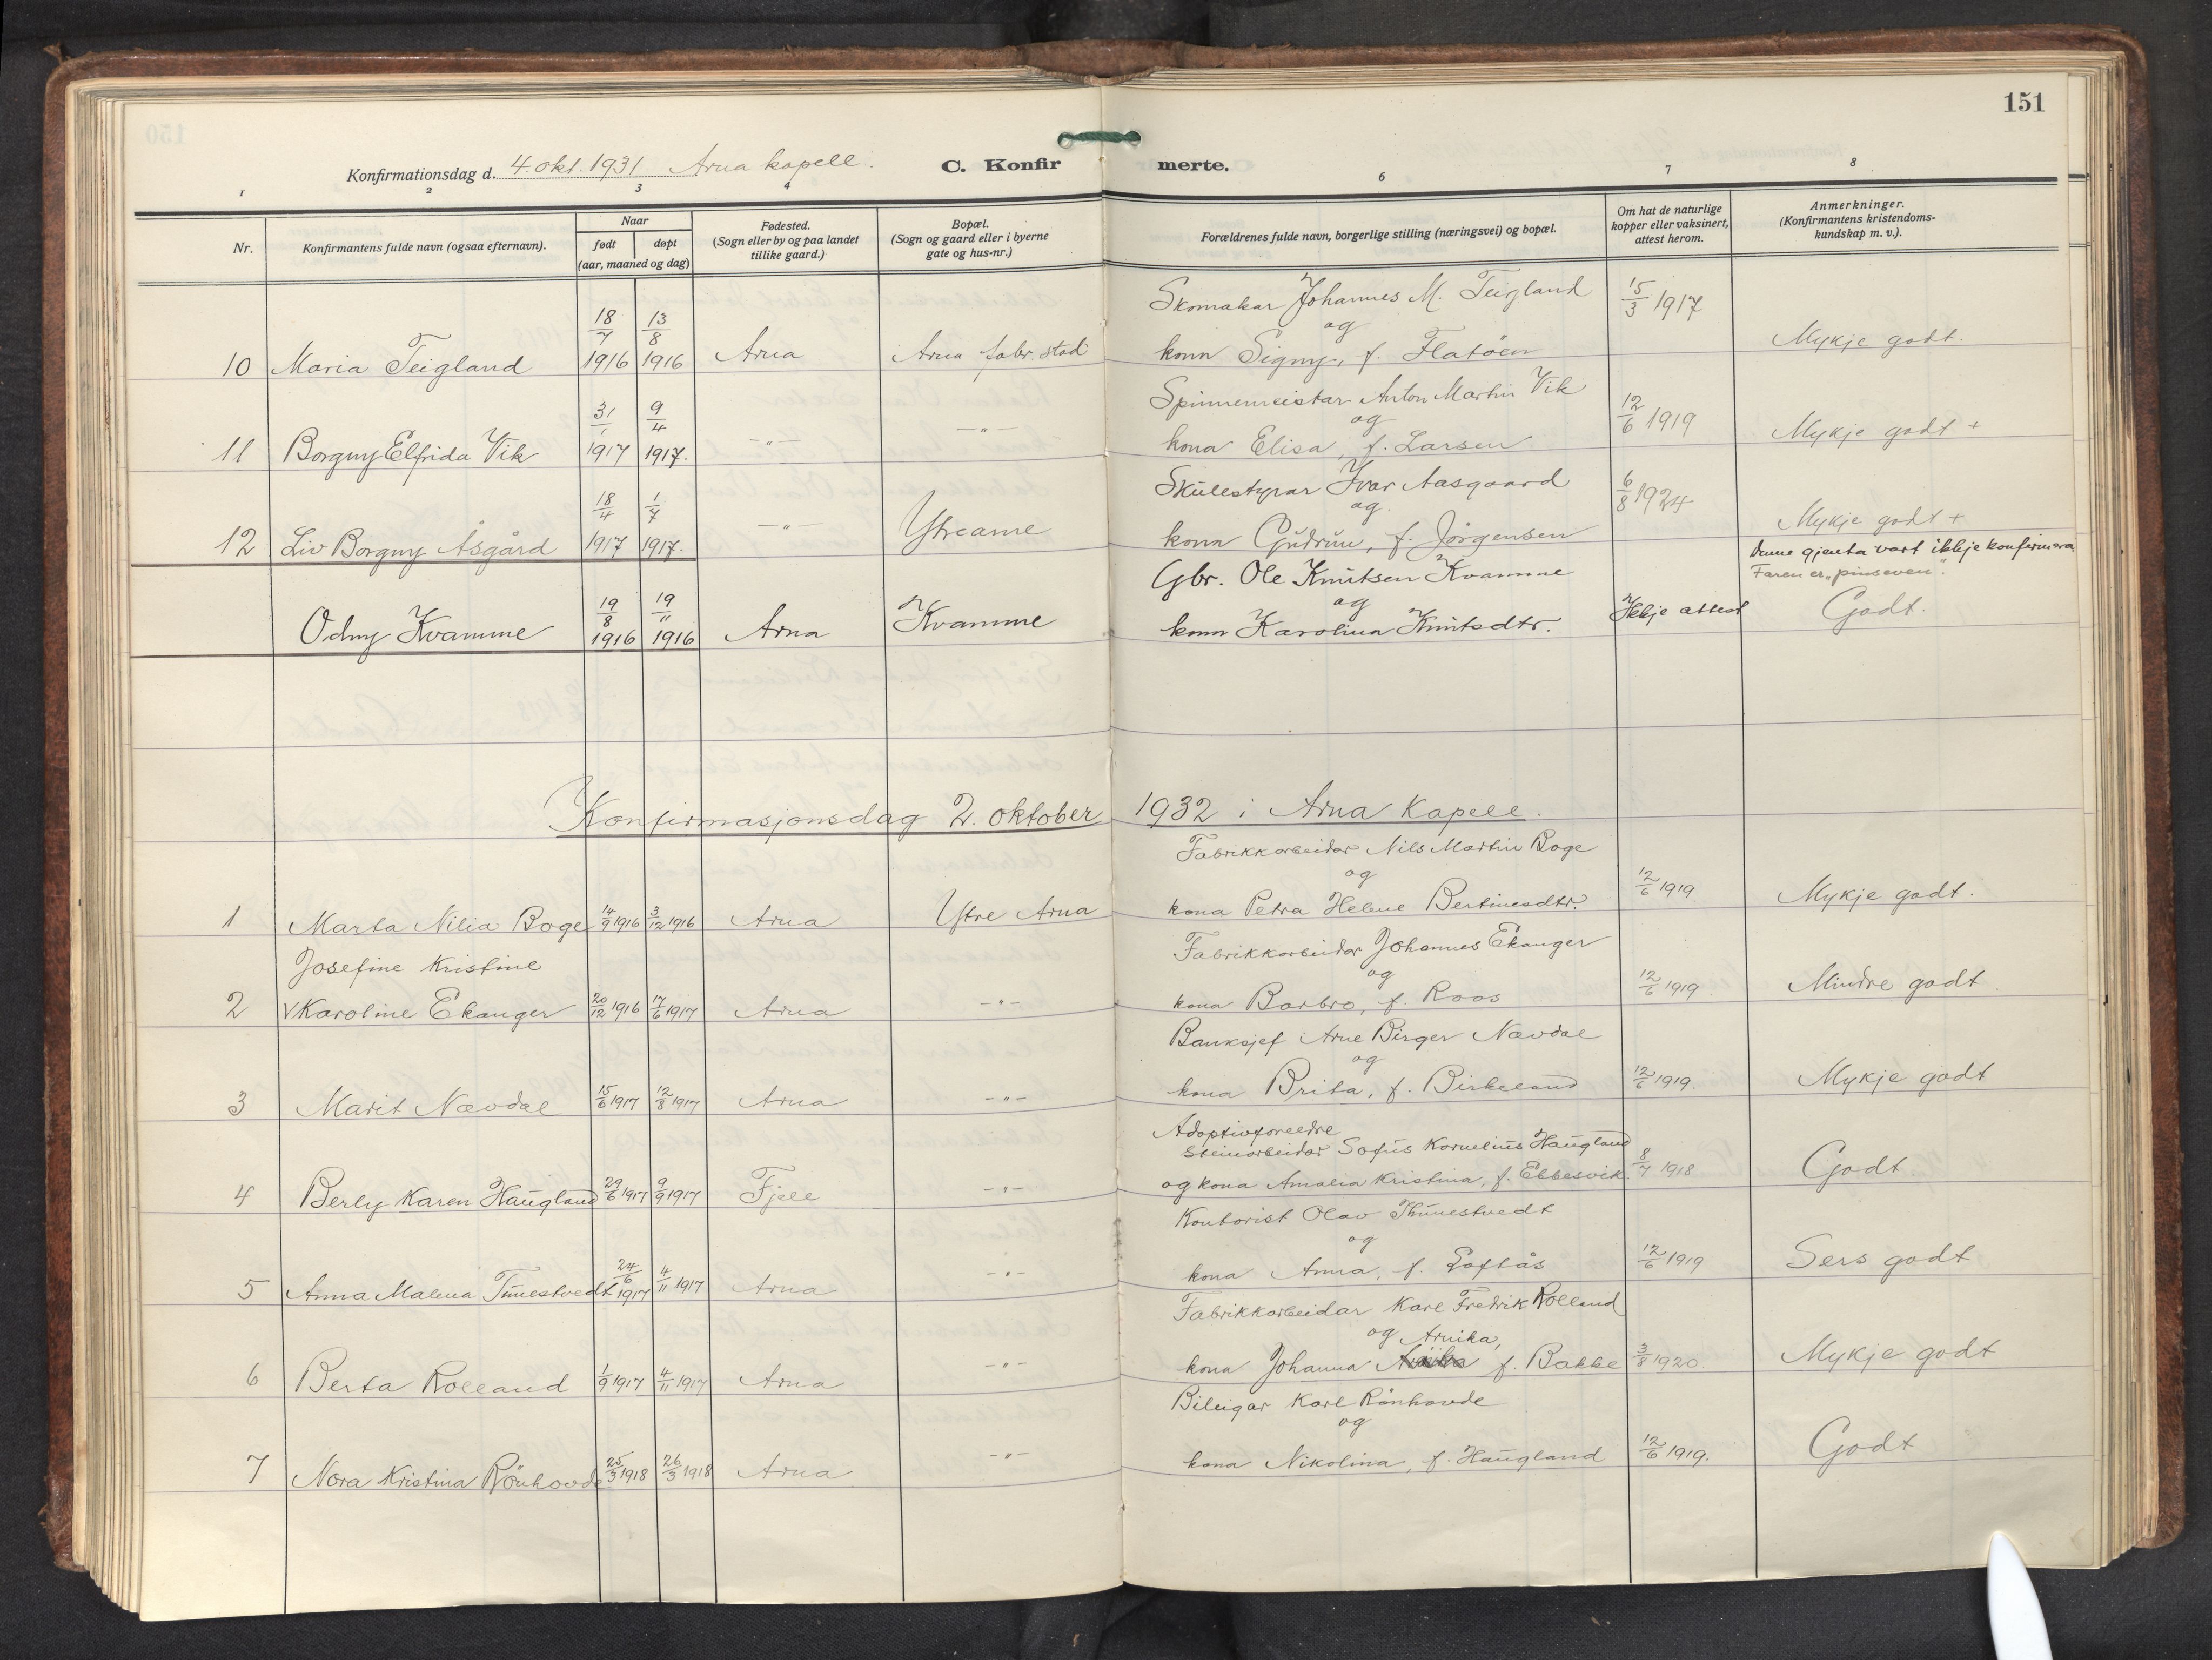 151
Konfirmationsdag d. 4. okt. 1931 Arna kapell. C. Konfirmerte.
1 2 3 4 6 7 8
Nr. Konfirmantens fulde navn (ogsaa efternavn). Naar født døpt (aar, maaned og dag) Fødested. (Sogn eller by og paa landet tillike gaard.) Bopæl. (Sogn og gaard eller i byerne gate og hus-nr.) Forældrenes fulde navn, borgerlige stilling (næringsvei) og bopæl. Om hat de naturlige kopper eller vaksinert, attest herom. Anmerkninger. (Konfirmantens kristendoms-kundskap m. v.).
Skomakar Johannes M. Teigland
og
10 Maria Teigland 18/7 1916 13/8 1916 Arna Arna fabr. stad kona Signy, f. Flatöen 15/3 1917 Mykje godt.
Spinnemeistar Anton Martin Vik
og
11 Borgny Elfrida Vik 31/1 1917 9/4 1917. -"- -"- kona Elisa, f. Larsen 12/6 1919 Mykje godt +
Skulestyrar Ivar Aasgaard
og
12 Liv Borgny Åsgård 18/4 1917 1/7 1917. -"- Ytrearne kona Gudrun, f. Jörgensen 6/8 1924 Mykje godt +
Denne gjenta vart ikkje konfirmera.
Faren er "pinseven".
Gbr. Ole Knutsen Kvamme
og
Odny Kvamme 19/8 1916 19/11 1916 Arna Kvamme kona Karolina Knutsdtr. Ikkje attest Godt.
Konfirmasjonsdag 2. oktober 1932 i Arna Kapell.
Fabrikkarbeidar Nils Martin Boge
og
1 Marta Nilia Boge 14/9 1916 3/12 1916 Arna Ytre Arna kona Petra Helene Bertinesdtr. 12/6 1919 Mykje godt.
Josefine Kristine Fabrikkarbeidar Johannes Ekanger
og
2 √Karoline Ekanger 20/12 1916 17/6 1917 Arna -"- kona Barbro, f. Roos 12/6 1919 Mindre godt
Banksjef Arne Birger Nævdal
og
3 Marit Nævdal 15/6 1917 12/8 1917 Arna -"- kona Brita, f. Birkeland 12/6 1919. Mykje godt
Adoptivforeldre
Steinarbeidar Sofus Kornelius Haugland
4 Berly Karen Haugland 29/6 1917 9/9 1917 Fjell -"- og kona Amalia Kristina, f. Ebbesvik. 8/7 1918 Godt.
Kontorist Olav Thunestvedt
og
5 Anna Malena Tunestvedt 24/6 1917 4/11 1917 Arna -"- kona Anna, f. Loftås 12/6 1919 Sers godt
Fabrikkarbeidar Karl Fredrik Rolland
og Arnika,
6 Berta Rolland 1/9 1917 4/11 1917 Arna -"- kona Johanna f. Bakke 3/8 1920. Mykje godt
Bileigar Karl Rånhovde
og
7 Nora Kristina Rönhovde 25/3 1918 26/3 1918 Arna -"- kona Nikolina, f. Haugland 12/6 1919. Godt